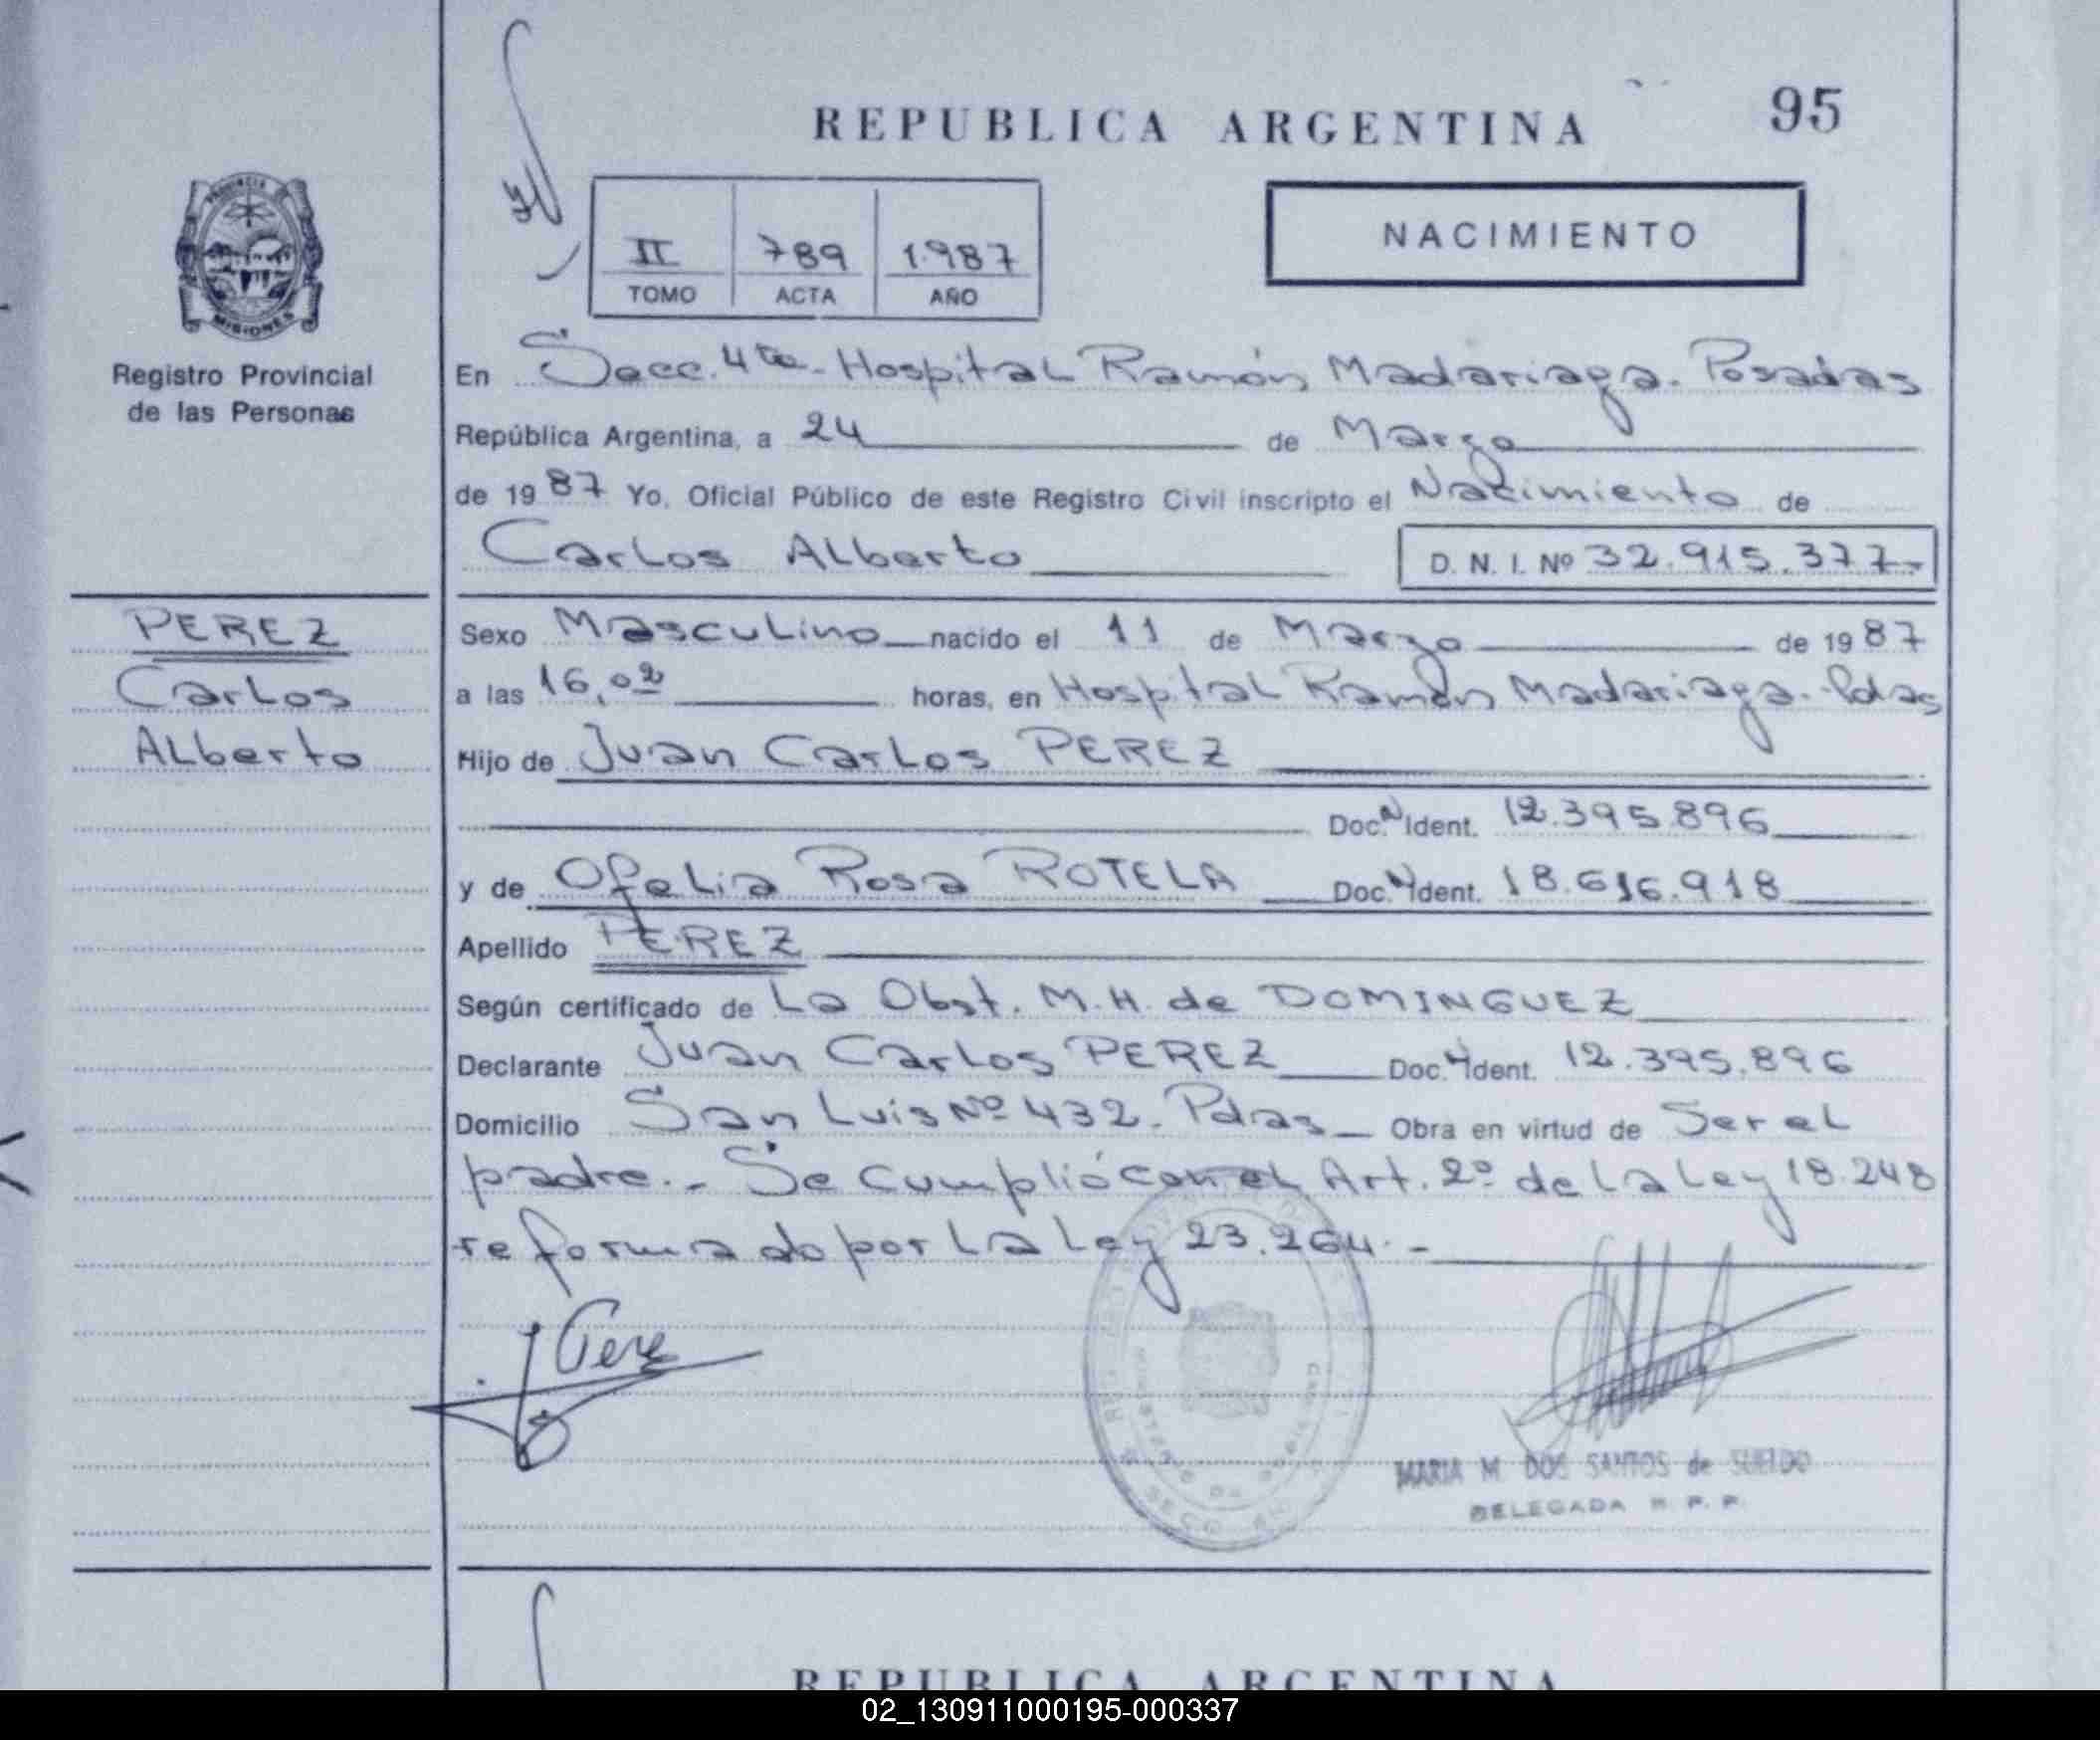 REPUBLICA ARGENTINA
95
PROVINCIA
MISIONES
Registro Provincial
de las Personas
II 789 1.987
TOMO ACTA AÑO
NACIMIENTO
En Secc. 4ta. Hospital Ramón Madariaga. Posadas
República Argentina, a 24 de Marzo
de 1987 Yo, Oficial Público de este Registro Civil inscripto el Nacimiento de
Carlos Alberto D. N. I. Nº 32.915.377.-
PEREZ
Carlos
Alberto
Sexo Masculino nacido el 11 de Marzo de 1987
a las 16,02 horas, en Hospital Ramón Madariaga.-Pdas
Hijo de Juan Carlos PEREZ
Doc. N Ident. 12.395.896
y de Ofelia Rosa ROTELA Doc. Ident. 18.616.918
Apellido PEREZ
Según certificado de La Obst. M.H. de DOMINGUEZ
Declarante Juan Carlos PEREZ Doc. Ident. 12.395.896
Domicilio San Luis Nº 432. Pdas Obra en virtud de Ser el
padre.- Se cumplió con el Art. 2º de la Ley 18.248
reformado por la Ley 23.264.-
J Perez
MARIA M. DOS SANTOS de
DELEGADA R. P. P.
REPUBLICA ARGENTINA
02_130911000195-000337